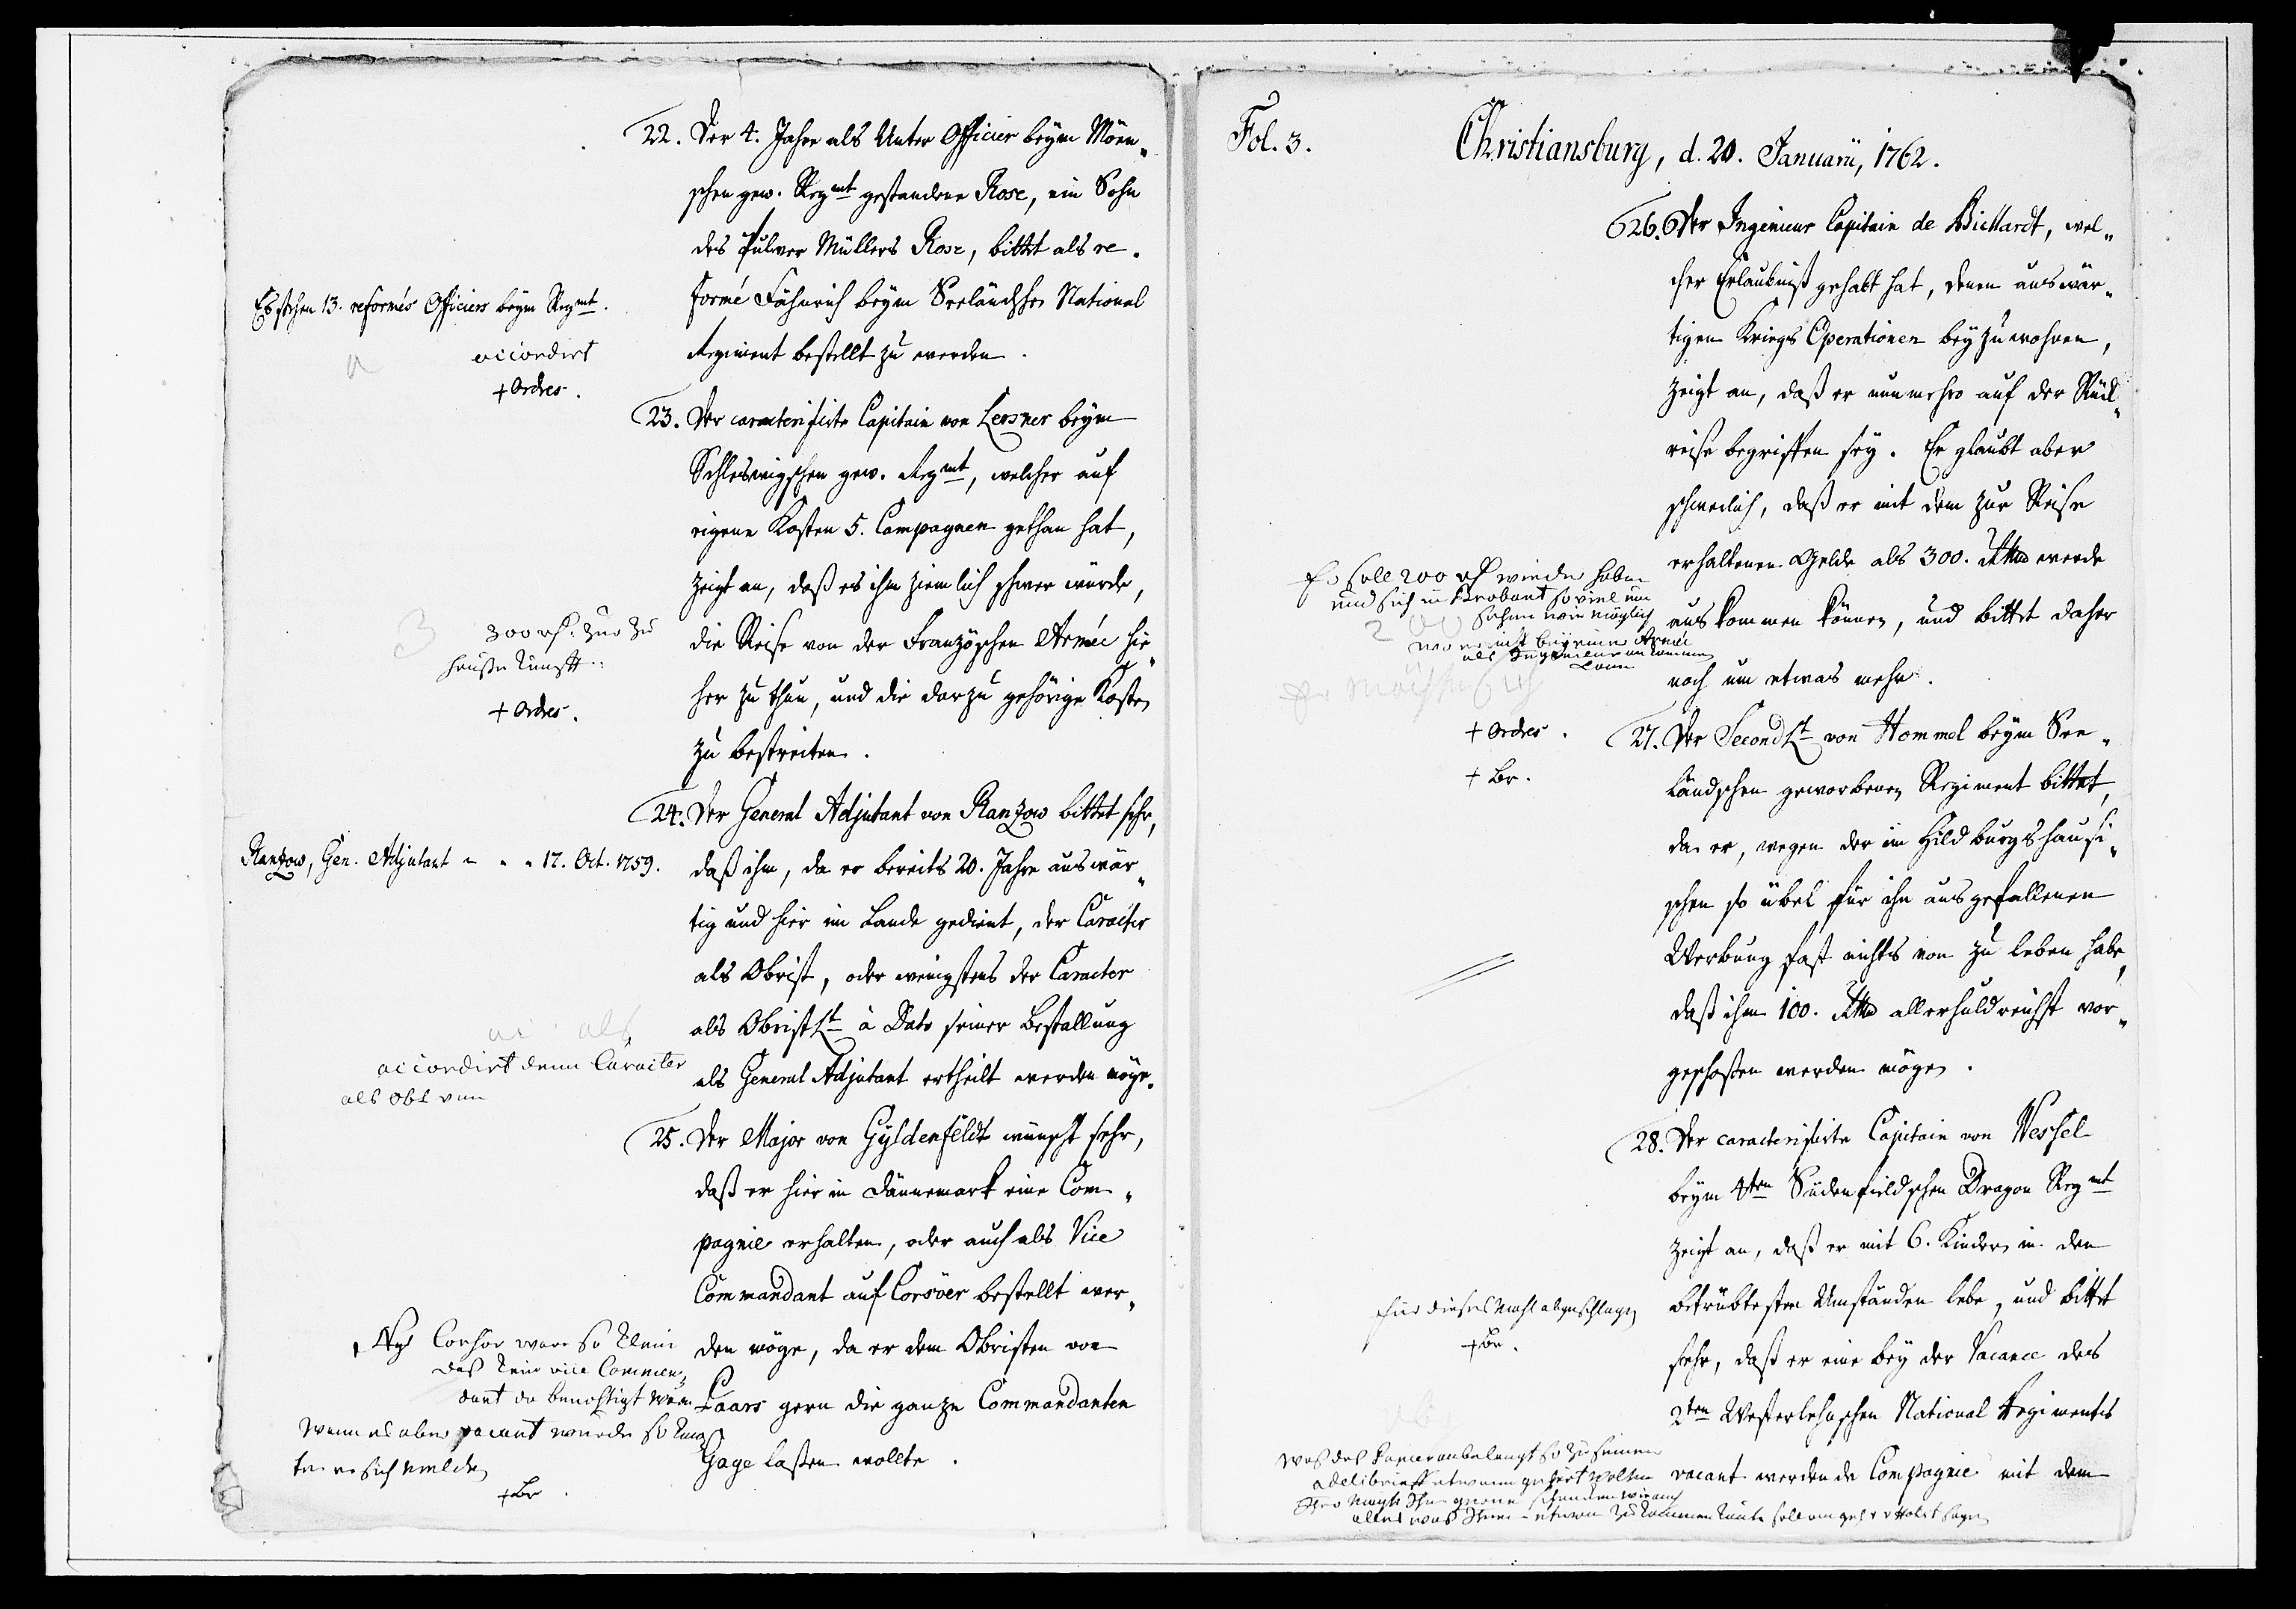 22. Der 4. Jahre als Unter Officier beym Möen„
schen gew. Regmt gestandene Rose, ein Sohn
des Pulver Müllers Rose, bittet als re-
formé Fähnrich beym Seeländschen National
Regiment bestellt zu werden.
Es stehen 13. reformés Officiers beym Regmt.
accordirt
+ Ordres.
23. Der caracterisirte Capitain von Lersner beym
Schleswigschen gew. Regmt, welcher auf
eigene Kosten 5. Campagnen gethan hat,
zeigt an, daß es ihm ziemlich schwer würde,
die Reise von der Französchen Armée hie„
her zu thun, und die darzu gehörige Kosten
zu bestreiten.
300 rh. zur zu
hauße kunfft
+ Ordres.
24. Der General Adjutant von Ranzow bittet sehr,
daß ihm, da er bereits 20. Jahre auswär„
tig und hier im Lande gedient, der Caracter
als Obrist, oder wenigstens der Caracter
als ObristLt à Dato seiner Bestallung
als General Adjutant ertheilt werden möge.
Ranzow, Gen. Adjutant „ „ „ 17. Oct. 1759.
accordirt denn Caracter
als Obl von
25. Der Major von Gyldenfeldt wünscht sehr,
daß er hier in Dännemark eine Com„
pagnie erhalten, oder auch als Vice
Commandant auf Corsöer bestellt wer„
den möge, da er dem Obristen von
Laars gern die ganze Commandanten
Gage laßen wollte.
Corsör ware so klein
das kein vice Commen„
dant da benöhtigt wäre
wenn es aber vacant wurde so kön
te er sich melden
+ Br.
Fol. 3.
Christiansburg, d. 20. Januarii, 1762.
26. Der Ingenieur Capitain de Bichardt, wel„
cher Erlaubniß gehabt hat, denen auswär„
tigen Kriegs Operationen beyzuwohnen,
zeigt an, daß er nunmehro auf der Rück„
reise begriffen sey. Er glaubt aber
schwerlich, daß er mit dem zur Reise
erhaltenen Gelde als 300. Rthlr werde
auskommen können, und bittet daher
noch um etwas mehr.
Er soll 200 rh wieder haben
und sich in Brabant so viel um
sehen wie möglich
wo er nicht bey eine Armée
als Ingenieur ankommen
kann
+ Ordres.
+ Br.
27. Der SecondLt von Hommel beym See„
ländschen geworbenen Regiment bittet,
da er, wegen der im Hildburgshausi„
schen so übel für ihn ausgefallenen
Werbung fast nichts von zu leben habe,
daß ihm 100. Rthlr allerhuldreichst vor„
geschoßen werden mögen.
28. Der caracterisirte Capitain von Wessel
beym 4ten Südenfieldschen Dragon Regmt
zeigt an, daß er mit 6. Kindern in den
betrübtesten Umständen lebe, und bittet
sehr, daß er eine bey der Vacance des
2ten Westerlehnschen National Regiments
vacant werdende Compagnie mit dem
für dieses Mahl abgeschlagen
+ Br.
was das anbelangt so zu seinen